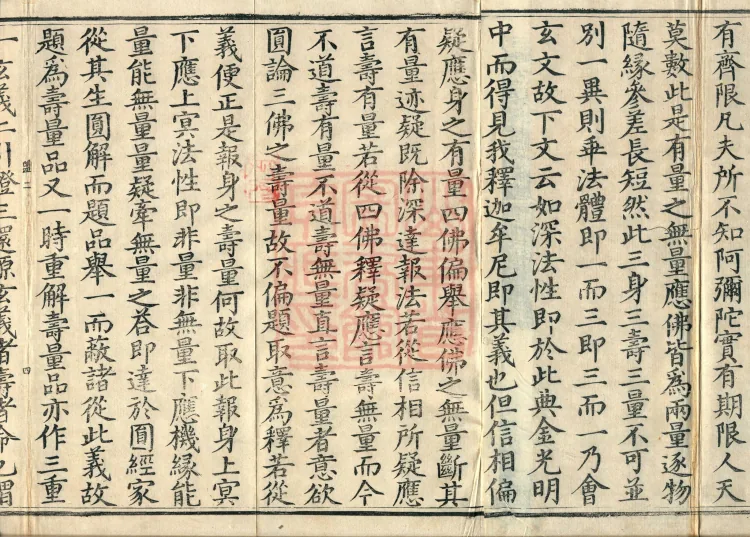 有齊限凡夫所不知阿彌陀實有期限人天
莫數此是有量之無量應佛皆爲兩量逐物
隨緣參差長短然此三身三壽三量不可並
別一異則乖法體即一而三即三而一乃會
玄文故下文云如深法性即於此典金光明
中而得見我釋迦牟尼即其義也但信相偏
疑應身之有量四佛偏舉應佛之無量斷其
有量迹疑既除深達報法若從信相所疑應
言壽有量若從四佛釋疑應言壽無量而今
不道壽有量不道壽無量直言壽量者意欲
圓論三佛之壽量故不偏題取意爲釋若從
義便正是報身之壽量何故取此報身上冥
下應上冥法性即非量非無量下應機緣能
量能無量量疑牽無量之荅即達於圓經家
從其生圓解而題品舉一而蔽諸從此義故
題爲壽量品又一時重解壽量品亦作三重
一玄義二引證三還源玄義者壽者命也謂